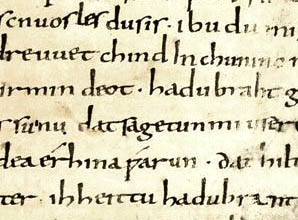 scnuosles du sis · ibu du mi
dre uuet chind In chuninc r
irmin deot · hadubraht g
s sunu dat sagetun mi user
dea érhina ƿárun · dat hilt
ter · ih heittu hadubrant